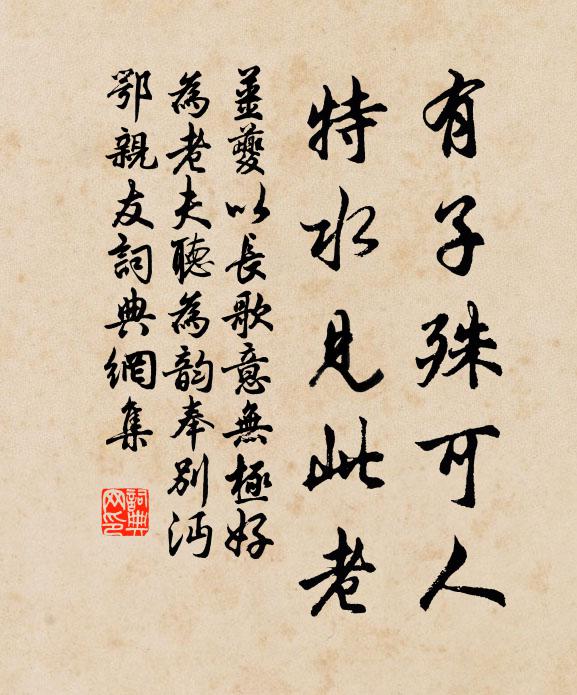 有子殊可人
特水見此老
姜夔以長歌意無極好
為老夫聽為韵奉別沔
鄂親友詞典網集
詞典網印